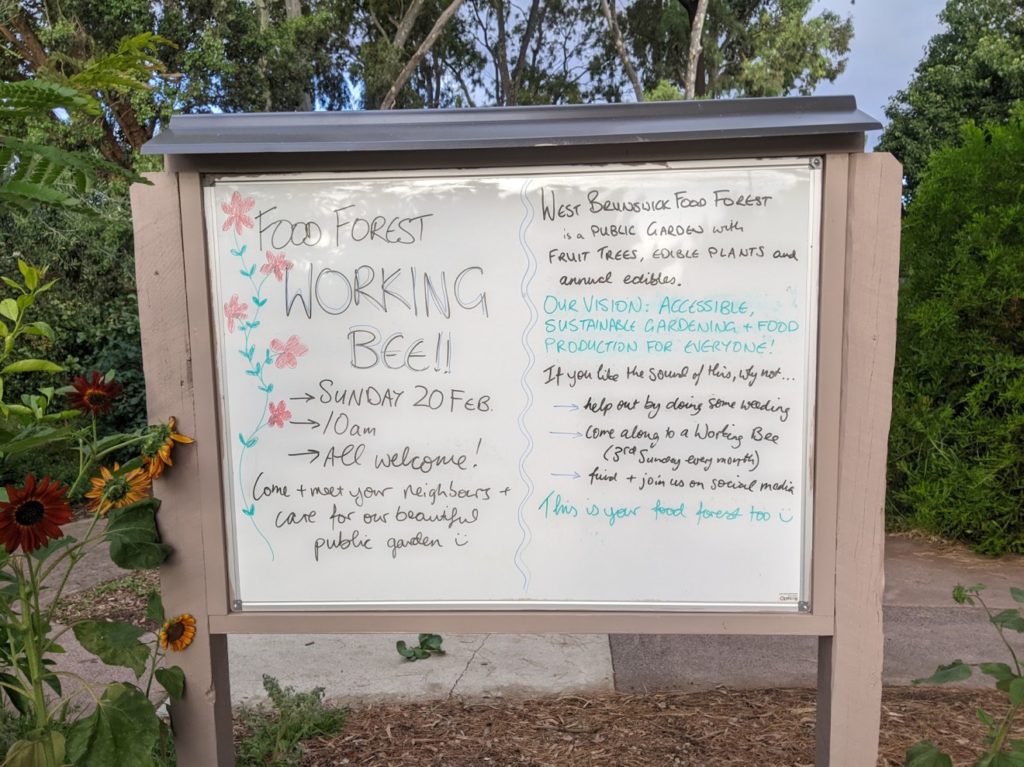 FOOD FOREST
WORKING
BEE!!
→ SUNDAY 20 FEB.
→ 10am
→ All welcome!
Come + meet your neighbours +
care for our beautiful
public garden ☺
WEST BRUNSWICK FOOD FOREST
is a PUBLIC GARDEN with
FRUIT TREES, EDIBLE PLANTS and
annual edibles.
OUR VISION: ACCESSIBLE,
SUSTAINABLE GARDENING + FOOD
PRODUCTION FOR EVERYONE!
If you like the sound of this, why not...
→ help out by doing some weeding
→ Come along to a Working Bee
(3rd Sunday every month)
→ find + join us on social media
This is your food forest too ☺